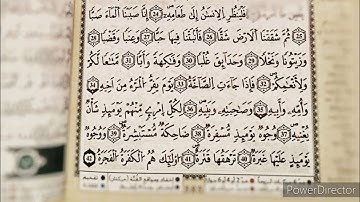 فَلْيَنظُرِ الْإِنسَٰنُ إِلَىٰ طَعَامِهِۦٓ ٢٤ أَنَّا صَبَبْنَا الْمَآءَ صَبًّا
٢٥ ثُمَّ شَقَقْنَا الْأَرْضَ شَقًّا ٢٦ فَأَنۢبَتْنَا فِيهَا حَبًّا ٢٧ وَعِنَبًا وَقَضْبًا
٢٨ وَزَيْتُونًا وَنَخْلًا ٢٩ وَحَدَآئِقَ غُلْبًا ٣٠ وَفَٰكِهَةً وَأَبًّا ٣١ مَّتَٰعًا لَّكُمْ
وَلِأَنْعَٰمِكُمْ ٣٢ فَإِذَا جَآءَتِ الصَّآخَّةُ ٣٣ يَوْمَ يَفِرُّ الْمَرْءُ مِنْ أَخِيهِ ٣٤
وَأُمِّهِۦ وَأَبِيهِ ٣٥ وَصَٰحِبَتِهِۦ وَبَنِيهِ ٣٦ لِكُلِّ امْرِئٍ مِّنْهُمْ يَوْمَئِذٍ شَأْنٌ
يُغْنِيهِ ٣٧ وُجُوهٌ يَوْمَئِذٍ مُّسْفِرَةٌ ٣٨ ضَاحِكَةٌ مُّسْتَبْشِرَةٌ ٣٩ وَوُجُوهٌ
يَوْمَئِذٍ عَلَيْهَا غَبَرَةٌ ٤٠ تَرْهَقُهَا قَتَرَةٌ ٤١ أُو۟لَٰٓئِكَ هُمُ الْكَفَرَةُ الْفَجَرَةُ ٤٢
PowerDirector